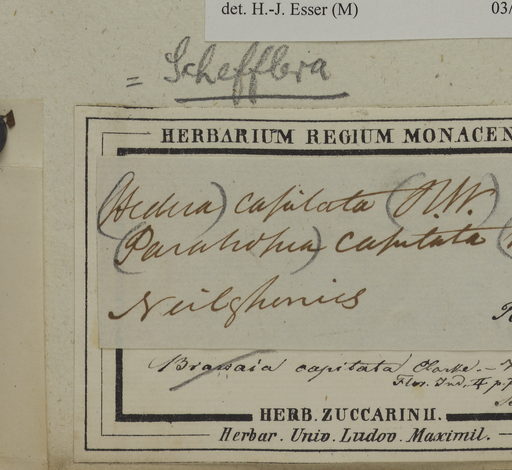 det. H.-J. Esser (M) 03/
= Schefflera
HERBARIUM REGIUM MONACEN
(Hedera) capitata (R.W.)
capitata
Neilgherries
Brassaia capitata Clarke. –
Flor. Ind. 4 p.7
HERB. ZUCCARINII.
Herbar. Univ. Ludov. Maximil.